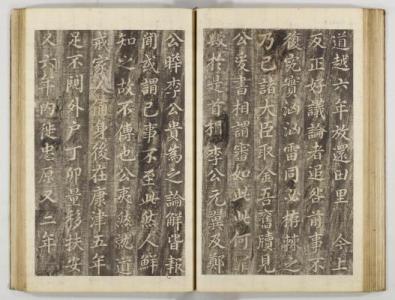 道越六年放還田里 今上
反正好議論者追咎前事不
復究實洶洶雷同必之
乃已諸大臣取金吾舊牘見
公爰書相謂審如此此何
於是首相李公元翼及鄭
公曄李公貴為之論解皆報
聞或謂己事不至此然人鮮
知以故不傳也公夷然就道
戒家人飭身後在康津五年
足不闚外戶丁卯量移扶安
又六年內徙忠原又二年